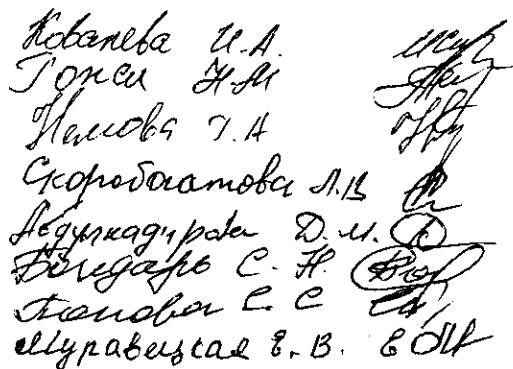 Ковалева И.А.
Гонса Н.М
Немова Т.А
Скоробогатова Л.В
Абдулкадирова Д.М.
Бондарь С.Н.
Попова С.С
Муравецкая Е.В.